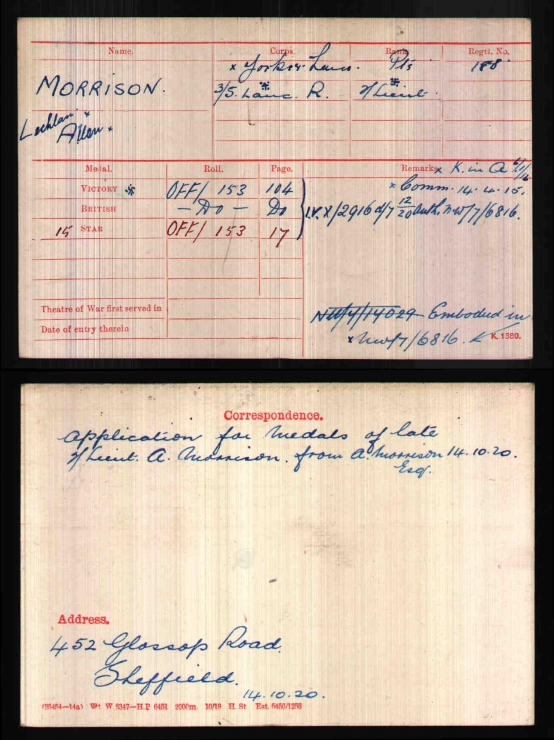 Name. Corps. Rank. Regtl. No.
MORRISON. × York & Lancs. Pte 188
Lachlan × 3/5. Lanc. R. 2/Lieut.
Allan ×
Medal. Roll. Page. Remarks. × K. in A.
VICTORY OFF/153 104 × Comm. 14.4.15.
BRITISH — Do — Do I.V.X/2916 d/7 12/20 auth. NW/7/6816.
15 STAR OFF/153 17
Theatre of War first served in NW/4/14029 Embodied in
Date of entry therein × NW/7/6816. K. 1380.
Correspondence.
Application for Medals of late
2/Lieut. A. Morrison. from A. Morrison 14.10.20.
Esq.
Address.
452 Glossop Road.
Sheffield.
14.10.20.
(35454—14a) Wt. W 5347—H.P. 6451 2000m. 10/19 H. St